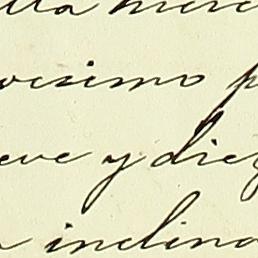 lla merc
oesimo p
eve y diez
a inclina